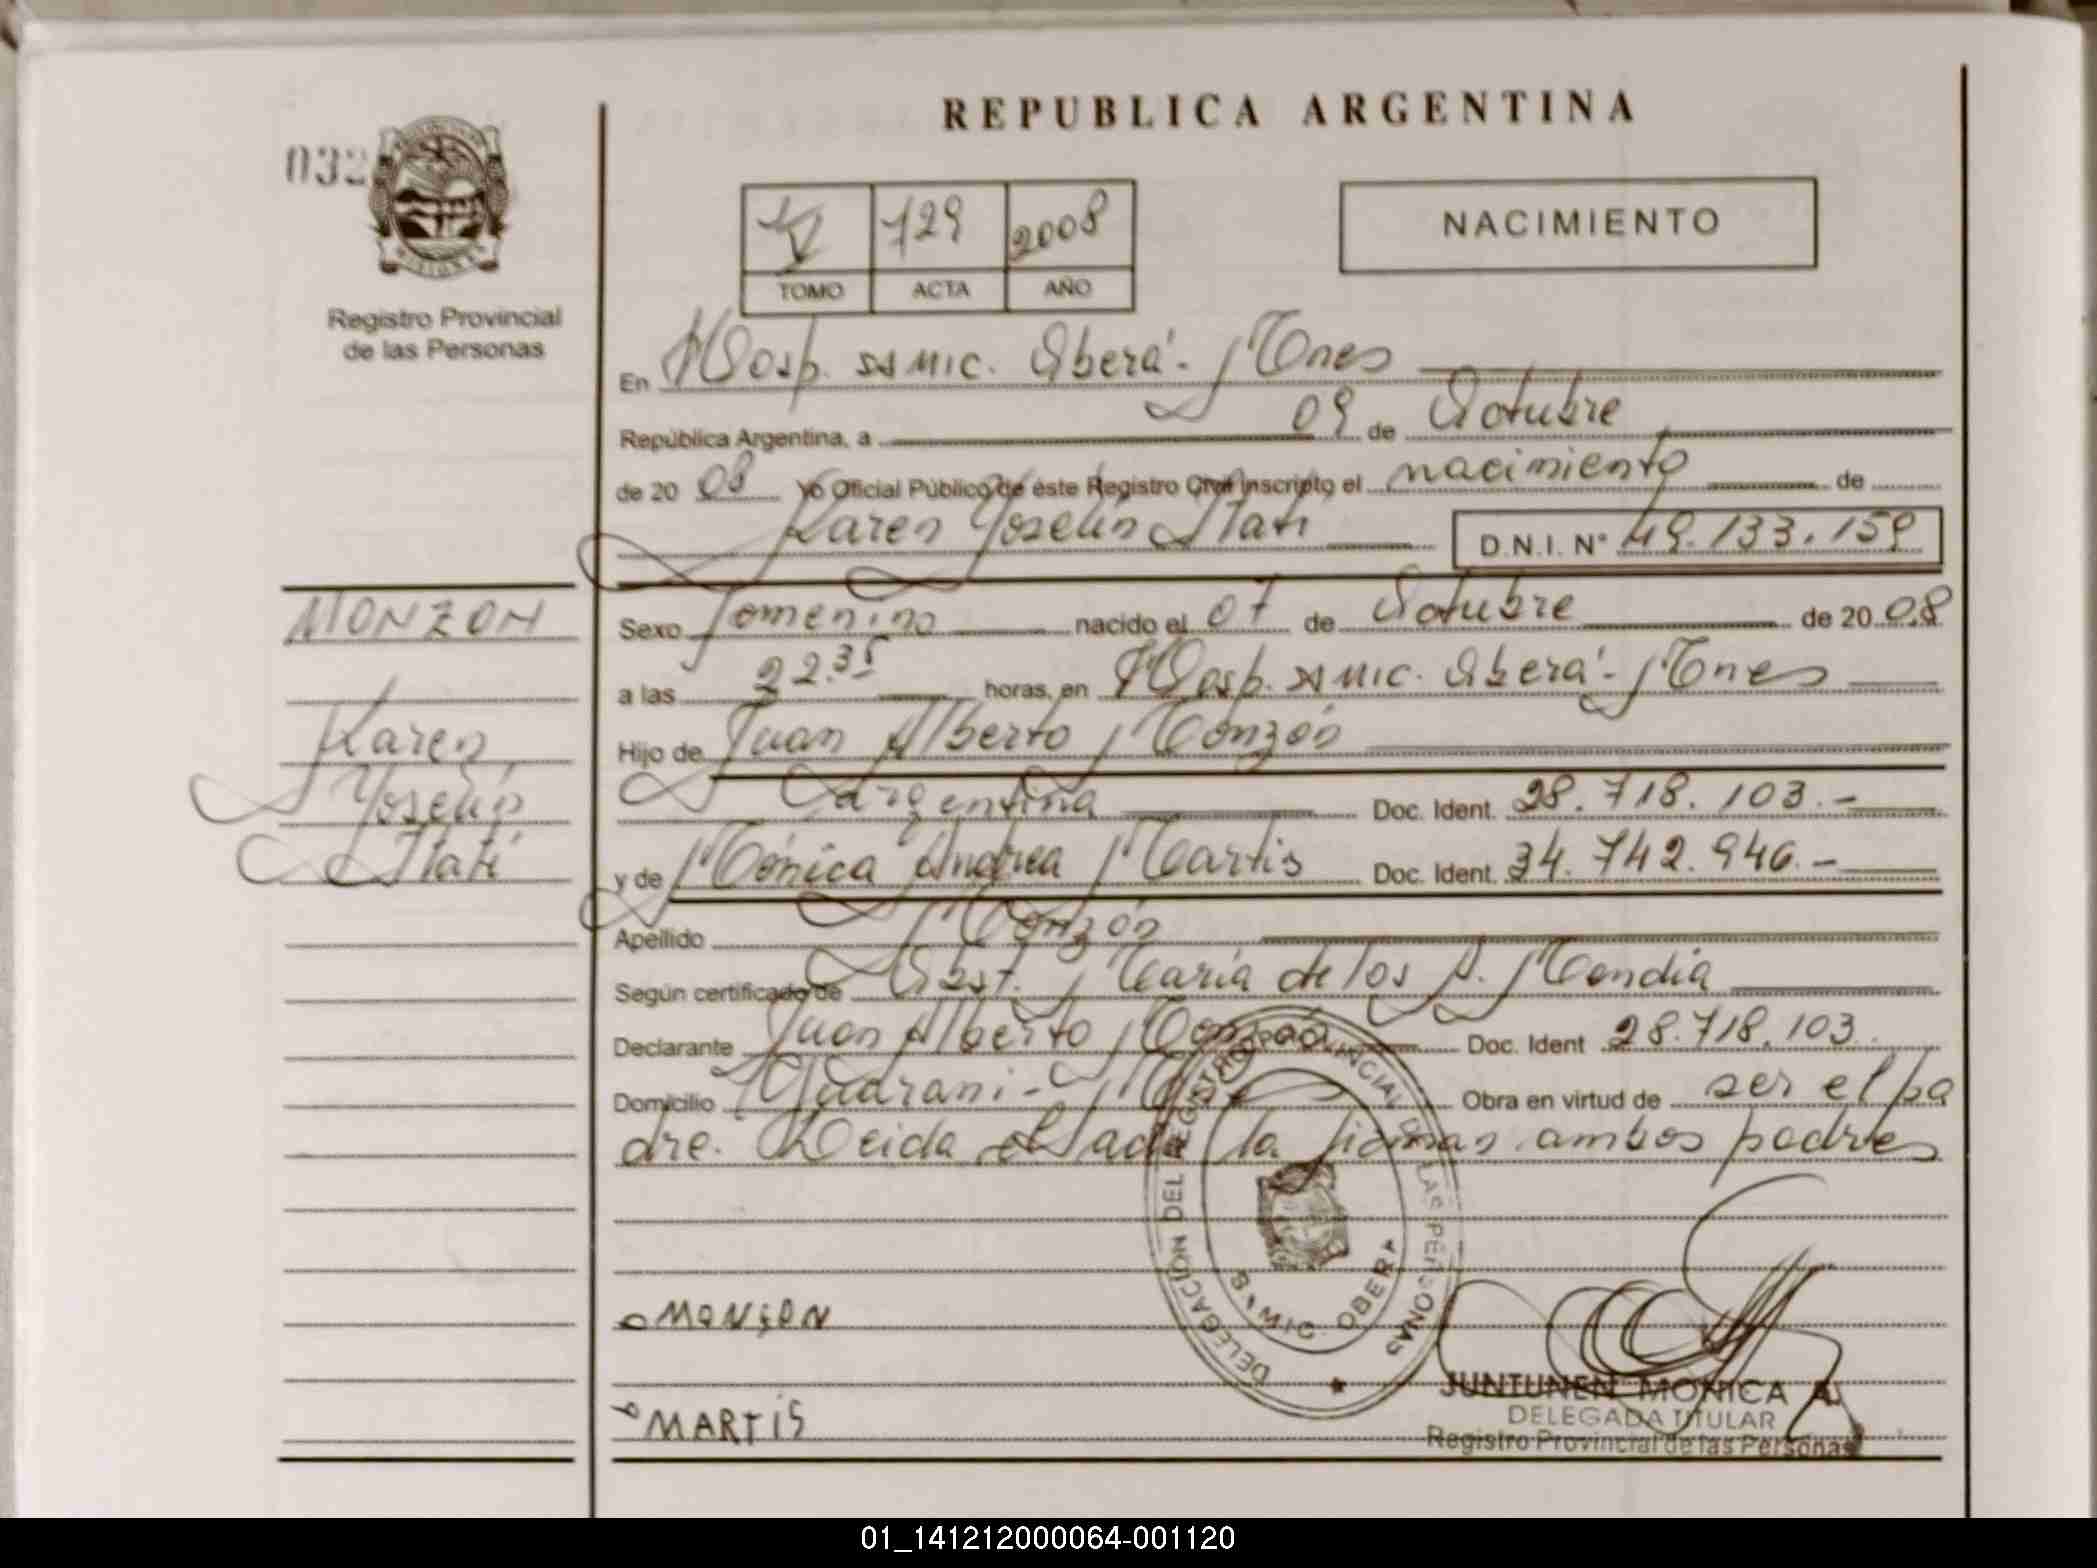 REPUBLICA ARGENTINA
032
MISIONES
Registro Provincial
de las Personas
729 2008
TOMO ACTA AÑO
NACIMIENTO
En Hosp. SAMIC. Oberá - Mnes
República Argentina, a 09 de Octubre
de 20 08 Yo Oficial Público de éste Registro Civil inscripto el nacimiento de
Karen Yoselin Itatí D.N.I. N° 49.133.159
MONZON
Karen
Yoselin
Itatí
Sexo femenino nacido el 07 de Octubre de 20 08
a las 22.35 horas, en Hosp. SAMIC. Oberá - Mnes
Hijo de Juan Alberto Monzón
Argentina Doc. Ident. 28.718.103.-
y de Mónica Andrea Martis Doc. Ident. 34.742.946.-
Apellido Monzón
Según certificado de Obst. María de los A. Mendia
Declarante Juan Alberto Monzón Doc. Ident 28.718.103.
Domicilio Guaraní - Obra en virtud de ser el pa
dre. Leida el acta la firman ambos padres
DELEGACIÓN DEL REGISTRO PROVINCIAL DE LAS PERSONAS
SAMIC. OBERA
MONSON
MARTIS
JUNTUNEN MONICA A.
DELEGADA TITULAR
Registro Provincial de las Personas
01_141212000064-001120